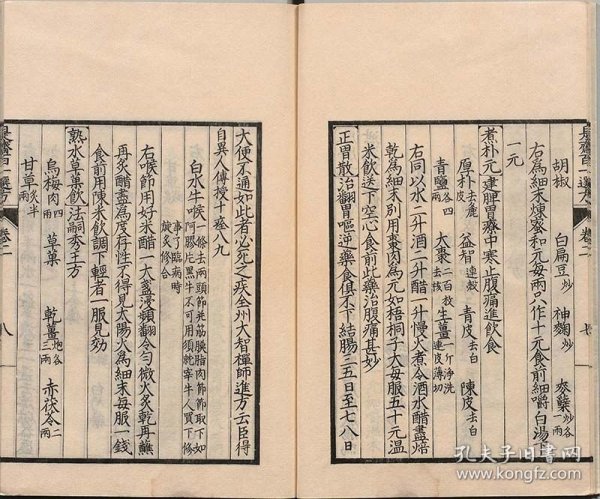 胡椒 白扁豆炒 神麴炒 麥糵炒各兩
右為細末煉蜜和元每兩只作十元食前細嚼白湯下
一元
者朴元建脾胃療中寒止腹痛進飲食
厚朴去皮 益智連殼 青皮去白 陳皮去白
青鹽各四兩 大棗二百枚去核 生薑一斤淨洗連皮薄切
右同以水二升酒二升醋一升慢火煮令酒水醋盡焙
乾為細末別用棗肉為元如梧桐子大每服五十元温
米飲送下空心食前此藥治腹痛甚妙
正胃散治翻胃嘔逆藥食俱不下結腸三五日至七八日
是齋百一選方 卷二 七
大便不通如此者必死之疾全州大智禪師進方云臣得
自異人傳授十痊八九
白水牛喉一條去兩頭節并筋膜脂肉節節取下如阿膠片黑牛不可用須就宰牛人買下修事了臨病時旋炙修合
右喉節用好米醋一大盞浸頻翻令勻微火炙乾再蘸
再炙醋盡為度存性不得見太陽火為細末每服一錢
食前用陳米飲調下輕者一服見効
熟水草菓飲法嗣秀王方
烏梅肉四兩 草菓 乾薑炮各三兩 赤茯苓二兩
甘草炙半兩
是齋百一選方 卷二 八
孔夫子旧书网
www.kongfz.com